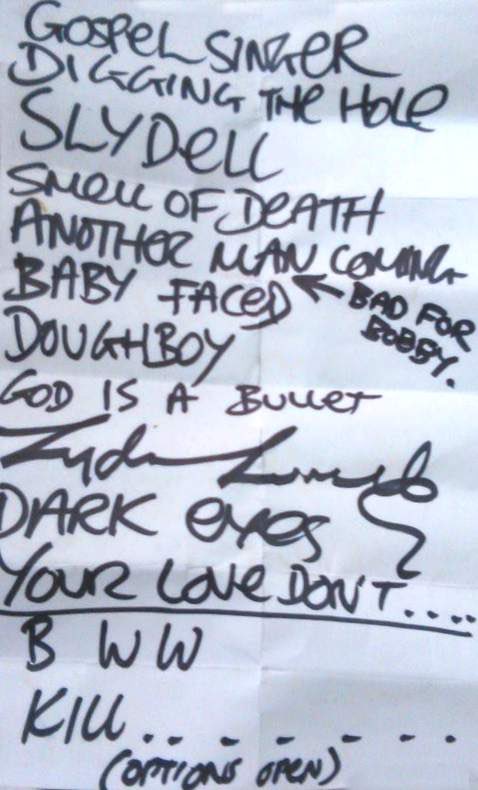 GOSPEL SINGER
DIGGING THE HOLE
SLYDELL
SMELL OF DEATH
ANOTHER MAN COMING
BABY FACED
BAD FOR
BOBBY.
DOUGHBOY
GOD IS A BULLET
Lydia Lunch
DARK EYES
YOUR LOVE DON'T....
B W W
KILL.. - - - - - -
(OPTIONS OPEN)